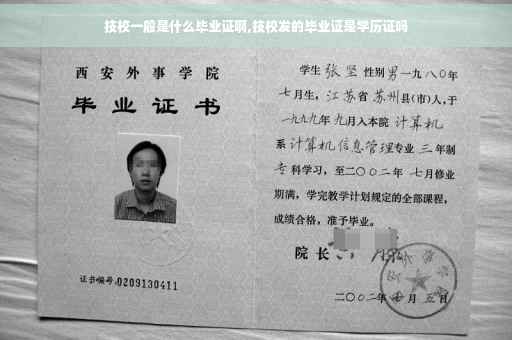 技校一般是什么毕业证啊,技校发的毕业证是学历证吗
西安外事学院
毕业证书
证书编号:0209130411
学生 张坚 性别 男 一九八〇年
七月生, 江苏省 苏州县(市)人,于
一九九九年 九月入本院 计算机
系 计算机信息管理专业 三 年制
专科学习, 至二〇〇二年 七月修业
期满, 学完教学计划规定的全部课程,
成绩合格, 准予毕业。
院长
二〇〇二年 月 五日